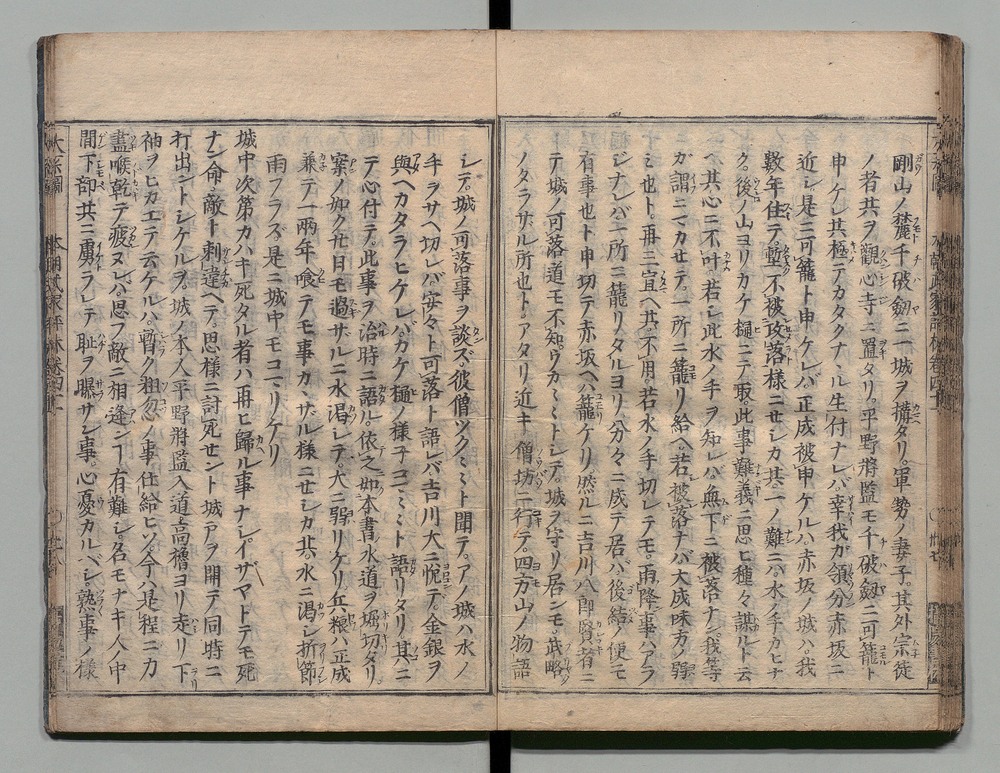 剛山ノ麓千破劔ニ一城ヲ構タリ。軍勢ノ妻子。其外宗徒
ノ者共ヲ觀心寺ニ置タリ。平野將監モ千破劔ニ可籠ト
申ケレ共極テカタクナヽル生付ナレバ幸我カ領分赤坂ニ
近シ是ニ可籠ト申ケレバ正成被申ケルハ赤坂ノ城ハ我
數年住テ輙不被攻落様ニセシカ共一ノ難ニハ水ノ手カヒナ
ク。後ノ山ヨリカケ樋ニテ取。此事難義ニ思ヒ種々謀ルト云
ヘ共心ニ不叶。若シ此水ノ手ヲ知レハ無下ニ被落ナン我等
ガ謂ニマカセテ。一所ニ籠リ給ヘ若被落ナバ大成味方ノ弱
ミ也ト。再三宜ヘ共不用。若水ノ手切レテモ。雨降事ハアラ
ジナレバ一所ニ籠リタルヨリ分々ニ成テ居ハ後結ノ便モ
有事也ト申切テ赤坂ヘハ籠ケリ然ルニ吉川八郎賢者ニ
テ城ノ可落道モ不知。ウカミミトシテ。城ヲ守リ居ンモ。武略
ノタラサル所也ト。アタリ近キ僧坊ニ行テ。四方山ノ物語
シテ。城ノ可落事ヲ談ズ彼僧ツクミミト聞テ。アノ城ハ水ノ
手ヲサヘ切レバ安々ト可落ト語レバ吉川大ニ悦テ。金銀ヲ
與ヘカタラヒケレバカケ樋ノ様子コミミト語リタリ。其ニ
テ心付テ。此事ヲ治時ニ語ル。依之如本書水道ヲ堀切タリ。
案ノ如ク廿日モ過サルニ水渇シテ。大ニ弱リケリ兵粮ハ正成
兼テ一兩年喰テモ事カヽザル様ニセシカ共。水ニ渇シ折節
雨フラズ是ニ城中モコマリケリ
城中次第カハキ死タル者ハ再ヒ歸ル事ナシ。イザマトテモ死
ナン命。敵ト刺違ヘテ。思様ニ討死セント城戸ヲ開テ同時ニ
打出ントシケルヲ。城ノ本人平野將監入道高櫓ヨリ走リ下
袖ヲヒカエテ云ケルハ。暫ク粗忽ノ事仕給ヒソ。今ハ是程ニ力
盡喉乾テ疲ヌレバ。思フ敵ニ相逢ン事有難シ。名モナキ人ノ中
間下部共ニ虜ラレテ恥ヲ曝サン事。心憂カルベシ。熟事ノ様